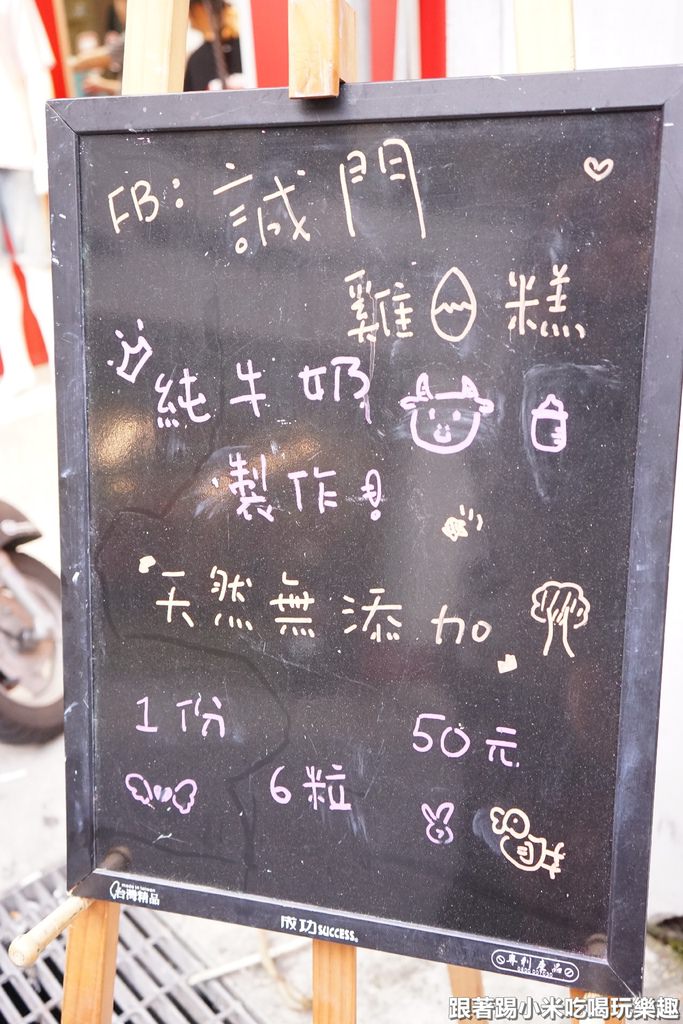 FB：誠門
雞蛋糕
純牛奶
製作！
天然無添加
1份 50元
6粒
made in taiwan
台灣精品
成功SUCCESS®
專利產品
跟著踢小米吃喝玩樂趣